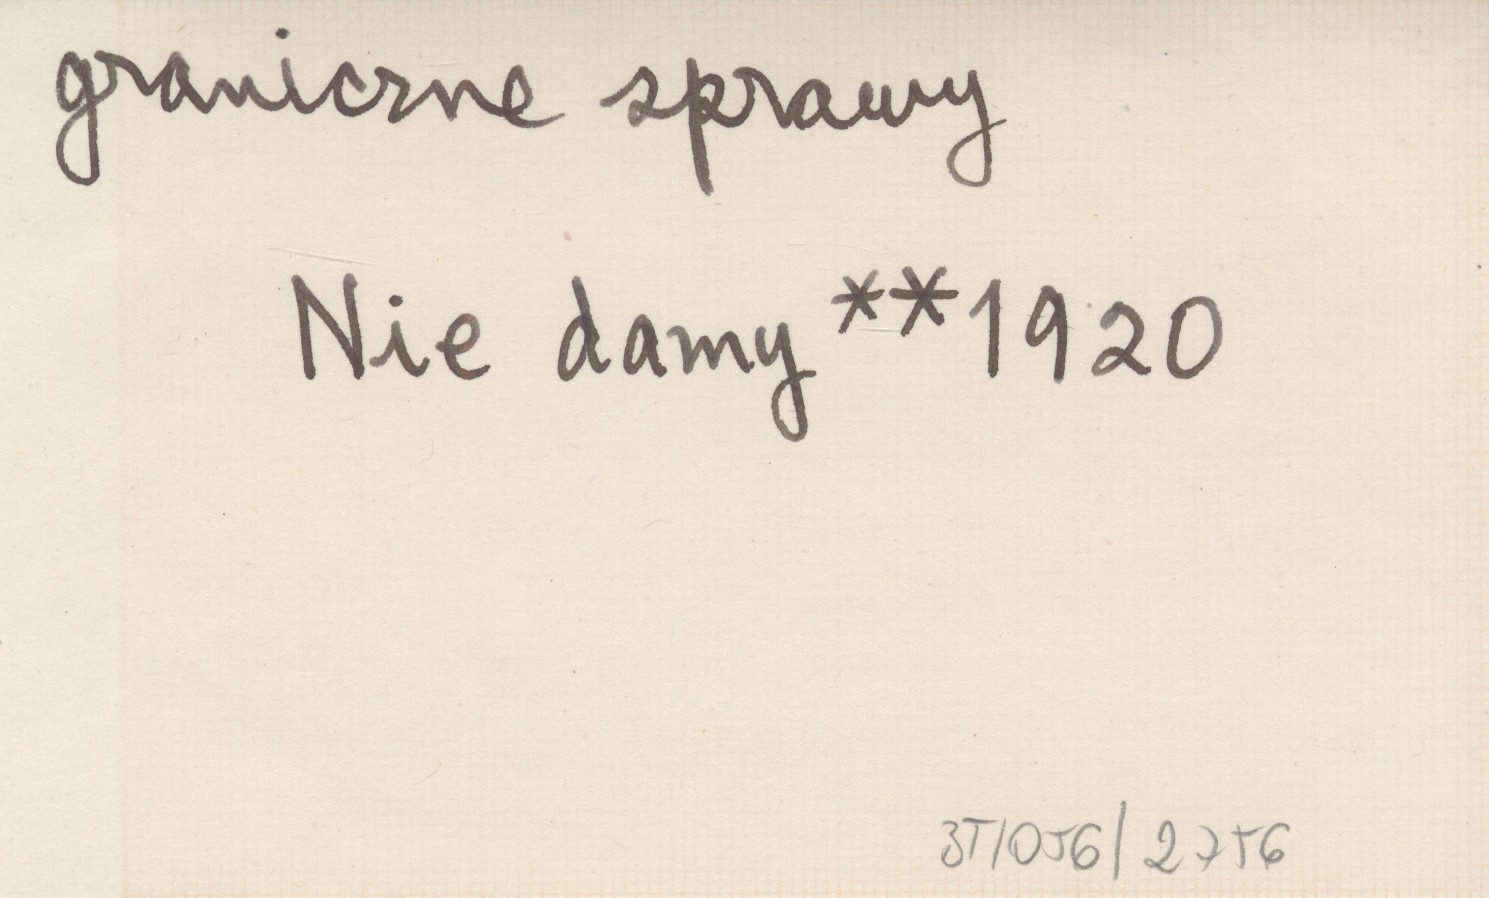 graniczne sprawy
Nie damy **1920
35/056/2756